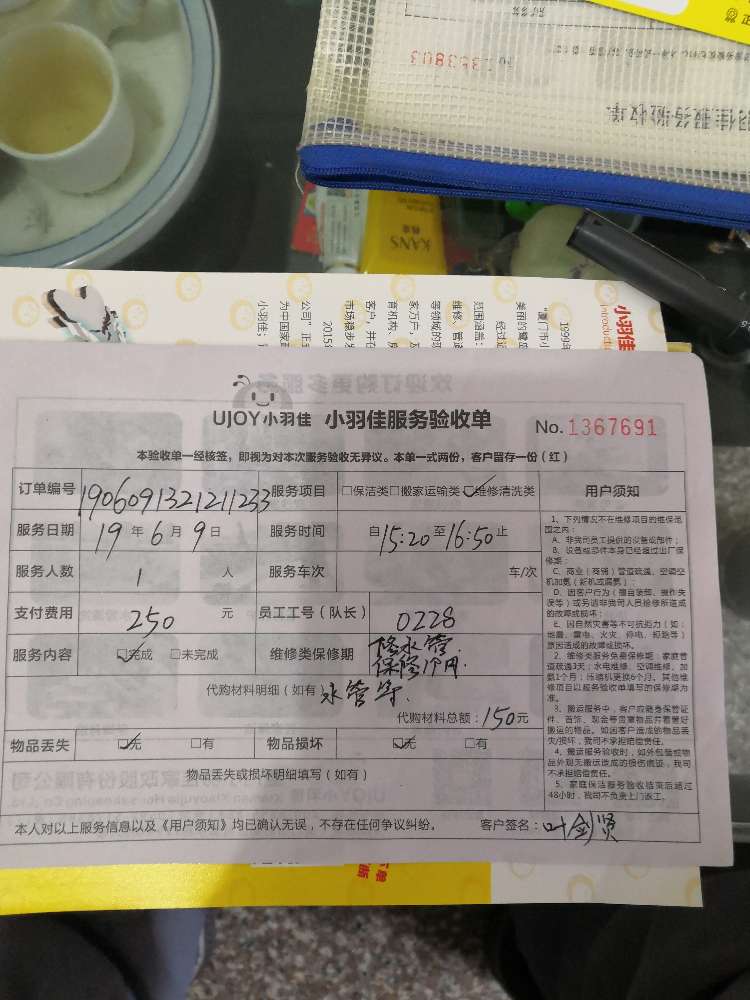 1353803
KANS
小羽佳
UJOY小羽佳 小羽佳服务验收单
No.1367691
本验收单一经核签，即视为对本次服务验收无异议。本单一式两份，客户留存一份（红）
订单编号 1906091321211233 服务项目 □保洁类□搬家运输类☑维修清洗类 用户须知
服务日期 19年6月9日 服务时间 自15:20至16:50止
服务人数 1 人 服务车次 车/次
支付费用 250 元 员工工号（队长） 0228
服务内容 ☑完成 □未完成 维修类保修期 修水管
保修1个月.
代购材料明细（如有 水管等.
代购材料总额：150元
物品丢失 ☑无 □有 物品损坏 ☑无 □有
物品丢失或损坏明细填写（如有）
本人对以上服务信息以及《用户须知》均已确认无误，不存在任何争议纠纷。 客户签名：叶剑贤
1、下列情况不在维修项目的维保范
围之内：
A、非我司员工提供的设备或部件；
B、设备或部件本身已经超过出厂保
修期；
C、商业（商铺）管道疏通、空调空
机加氟（新机或漏氟）；
D、因客户行为（擅自装卸、操作失
误等）或另请非我司人员检修所造成
的故障或损坏；
E、因自然灾害等不可抗拒力（如：
地震、雷电、火灾、停电、短路等）
原因造成的故障或损坏。
2、维修类服务免费保修期：家庭管
道疏通3天；水电维修、空调维修、加
氟1个月；压缩机更换6个月。其他维
修项目以服务验收单填写的保修期为
准。
3、搬运服务中，客户应随身保管证
件、首饰、现金等贵重物品并看管好
搬运的物品。如因客户造成的物品丢
失/损坏，我司不承担赔偿责任。
4、搬运服务验收时，如外包装或物
品外观无搬运造成的损伤痕迹，我司
不承担赔偿责任。
5、家庭保洁服务验收结束后超过
48小时，我司不负责上门返工。